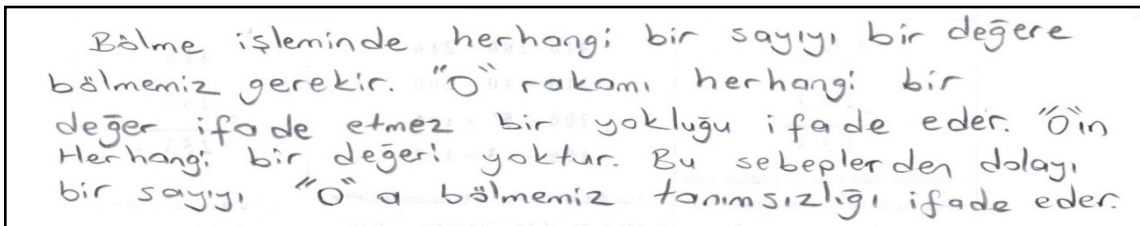 Bölme işleminde herhangi bir sayıyı bir değere
bölmemiz gerekir. "0" rakamı herhangi bir
değer ifade etmez bir yokluğu ifade eder. "0"ın
Herhangi bir değeri yoktur. Bu sebeplerden dolayı
bir sayıyı "0"a bölmemiz tanımsızlığı ifade eder.